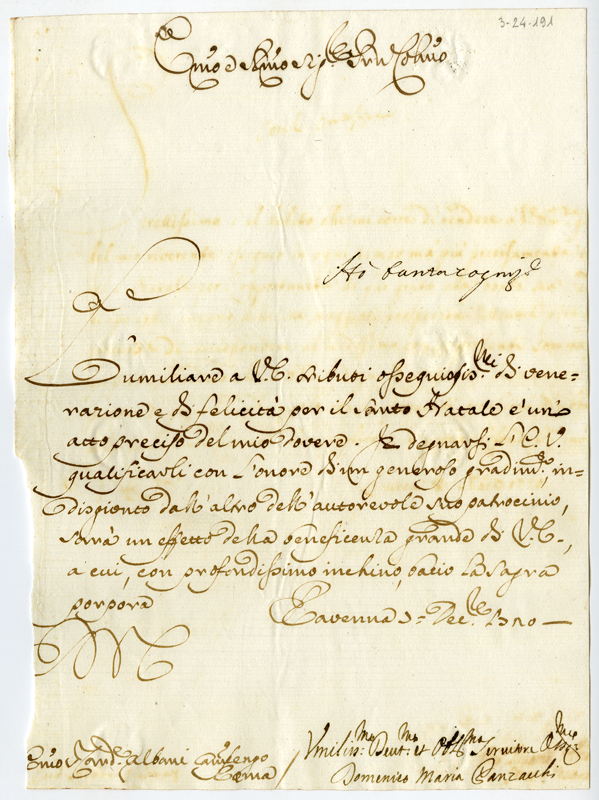 3-24-191
Emo e Rmo Sig.re Prñ Colmo
L'umiliare a V.E. tributi ossequiosis.mi di vene=
razione e di felicità per il Santo Natale è un'
atto preciso del mio dovere. Il degnarsi l'E.V.
qualificarli con l'onore di un generoso gradim.to, in=
disgionto dall'altro dell'autorevole suo patrocinio,
sarà un effetto della beneficenza grande di V.E.,
a cui, con profondissimo inchino, bacio la sagra
porpora
Ravenna Dec.re
Emo Card. Albani Camerlengo
Roma
Umiliss.mo Devot.mo et Obb.mo Servitore
Domenico Maria